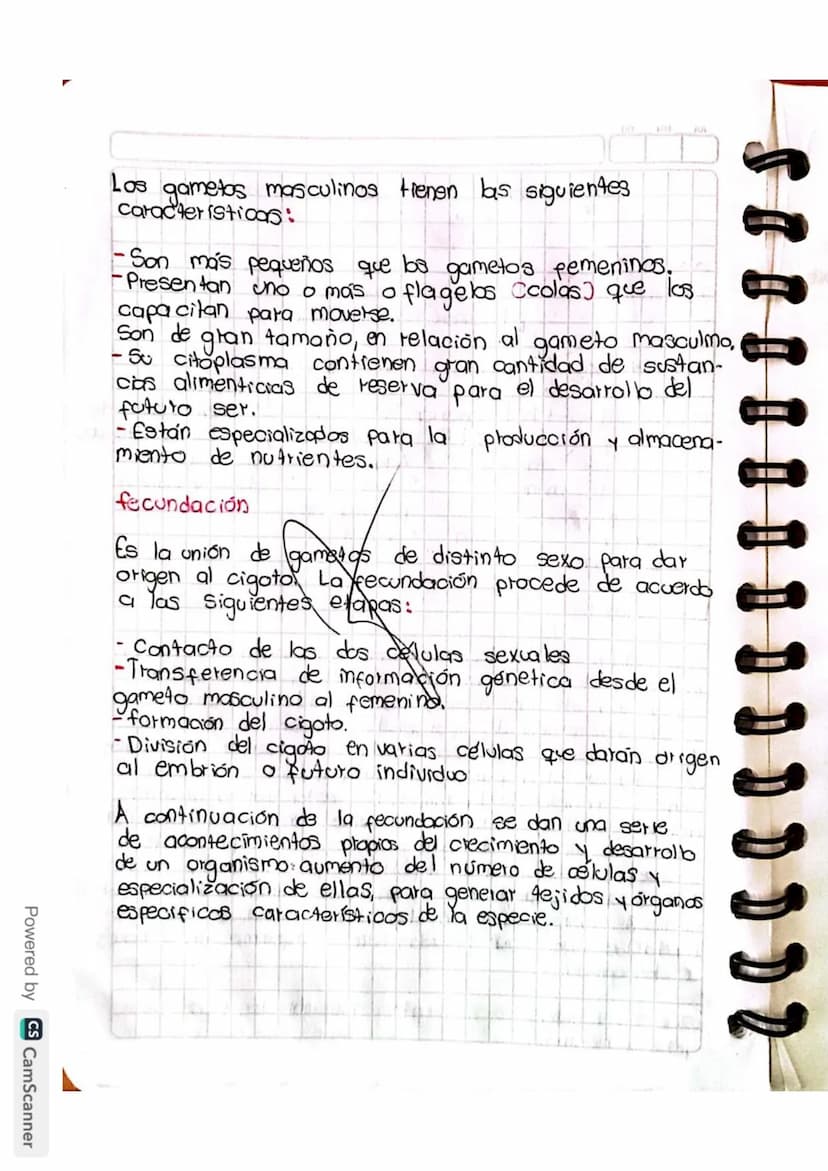 Los gametos masculinos tienen las siguientes
características:
- Son más pequeños que los gametos femeninos.
- Presentan uno o más o flagelos (colas) que los
capacitan para moverse.
Son de gran tamaño, en relación al gameto masculino.
- Su citoplasma contienen gran cantidad de sustan-
cias alimenticias de reserva para el desarrollo del
futuro ser.
- Están especializados para la producción y almacena-
miento de nutrientes.
fecundación
Es la unión de gametos de distinto sexo para dar
origen al cigoto. La fecundación procede de acuerdo
a las siguientes etapas:
- Contacto de las dos células sexuales
- Transferencia de información génetica desde el
gameto masculino al femenino.
- formación del cigoto.
- División del cigoto en varias células que darán origen
al embrión o futuro individuo
A continuación de la fecundación se dan una serie
de acontecimientos propios del crecimiento y desarrollo
de un organismo: aumento del número de células y
especialización de ellas, para generar tejidos y órganos
específicos característicos de la especie.
Powered by CS CamScanner